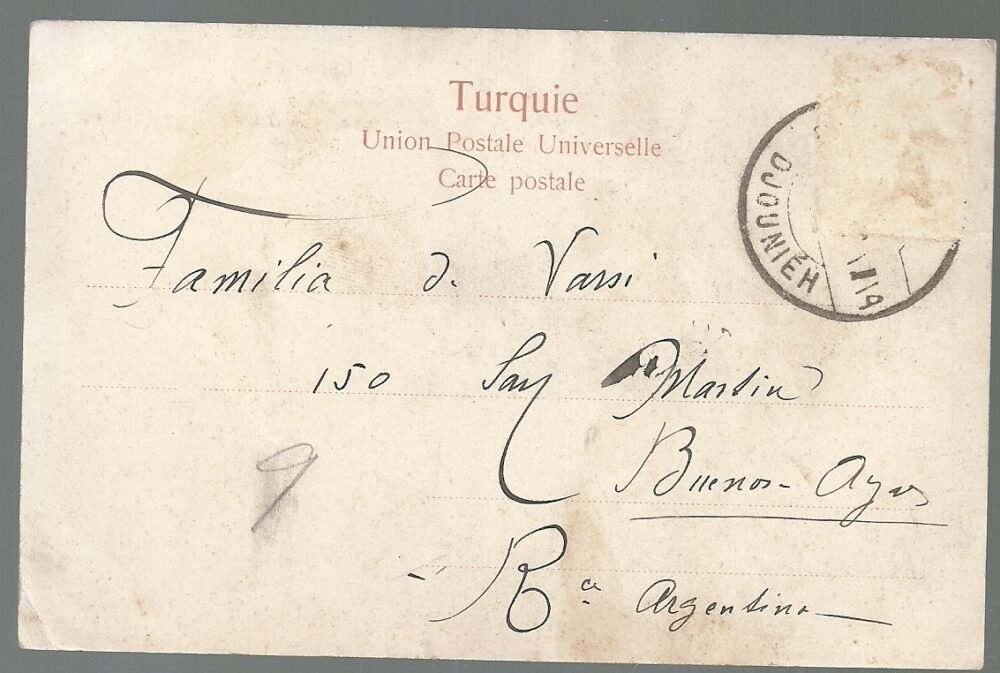 Turquie
Union Postale Universelle
Carte postale
Familia d. Varsi
150 San Martin
Buenos-Ayres
Rca Argentina
DJOUNIÉH
9